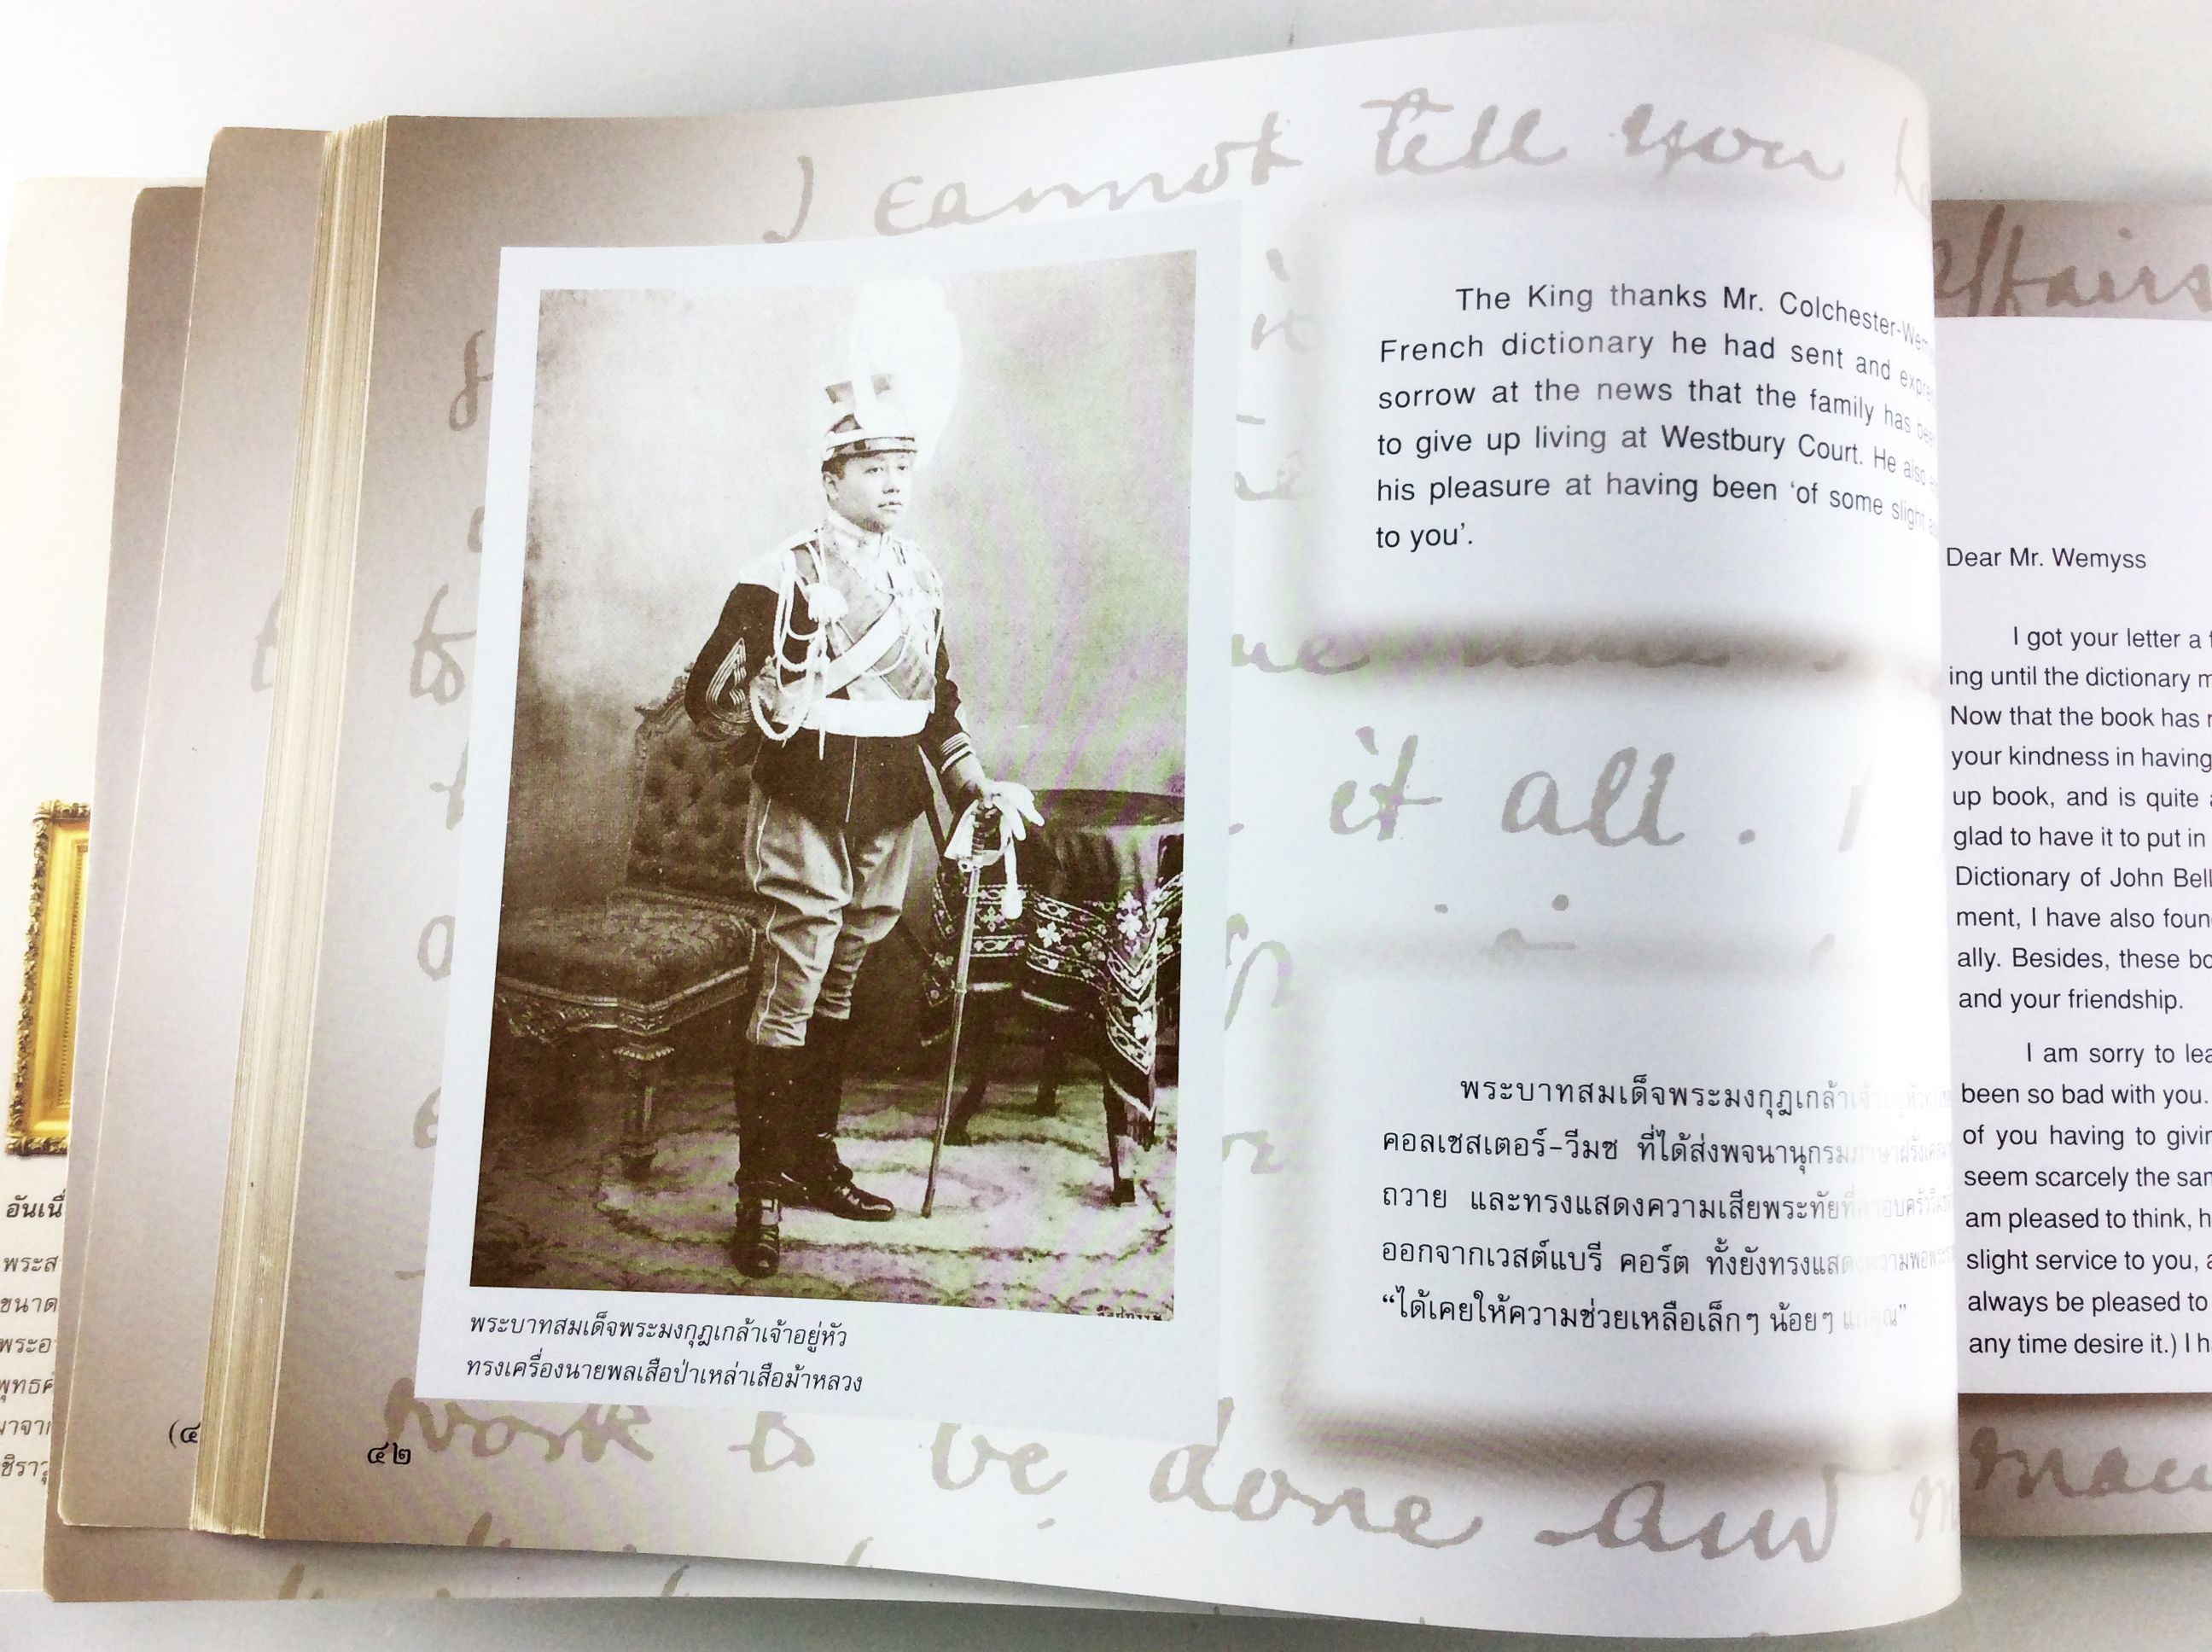 I cannot tell you
The King thanks Mr. Colchester-
French dictionary he had sent and
sorrow at the news that the family has
to give up living at Westbury Court. He also
his pleasure at having been ‘of some slight
to you’.
it all.
พระบาทสมเด็จพระมงกุฎเกล้า
คอลเชสเตอร์-วีมซ ที่ได้ส่งพจนานุกรม
ถวาย และทรงแสดงความเสียพระทัยที่
ออกจากเวสต์แบรี คอร์ต ทั้งยังทรงแสดง
“ได้เคยให้ความช่วยเหลือเล็กๆ น้อยๆ แก่คุณ”
พระบาทสมเด็จพระมงกุฎเกล้าเจ้าอยู่หัว
ทรงเครื่องนายพลเสือป่าเหล่าเสือม้าหลวง
work to be done and
๔๒
affairs
Dear Mr. Wemyss
I got your letter a
ing until the dictionary
Now that the book has
your kindness in having
up book, and is quite
glad to have it to put in
Dictionary of John Bell
ment, I have also
ally. Besides, these
and your friendship.
I am sorry to
been so bad with you.
of you having to
seem scarcely the
am pleased to think,
slight service to you,
always be pleased to
any time desire it.) I
(๔
อันเนื่
พระส
ขนาด
พระอ
พุทธ
มาจาก
ชิราวุ